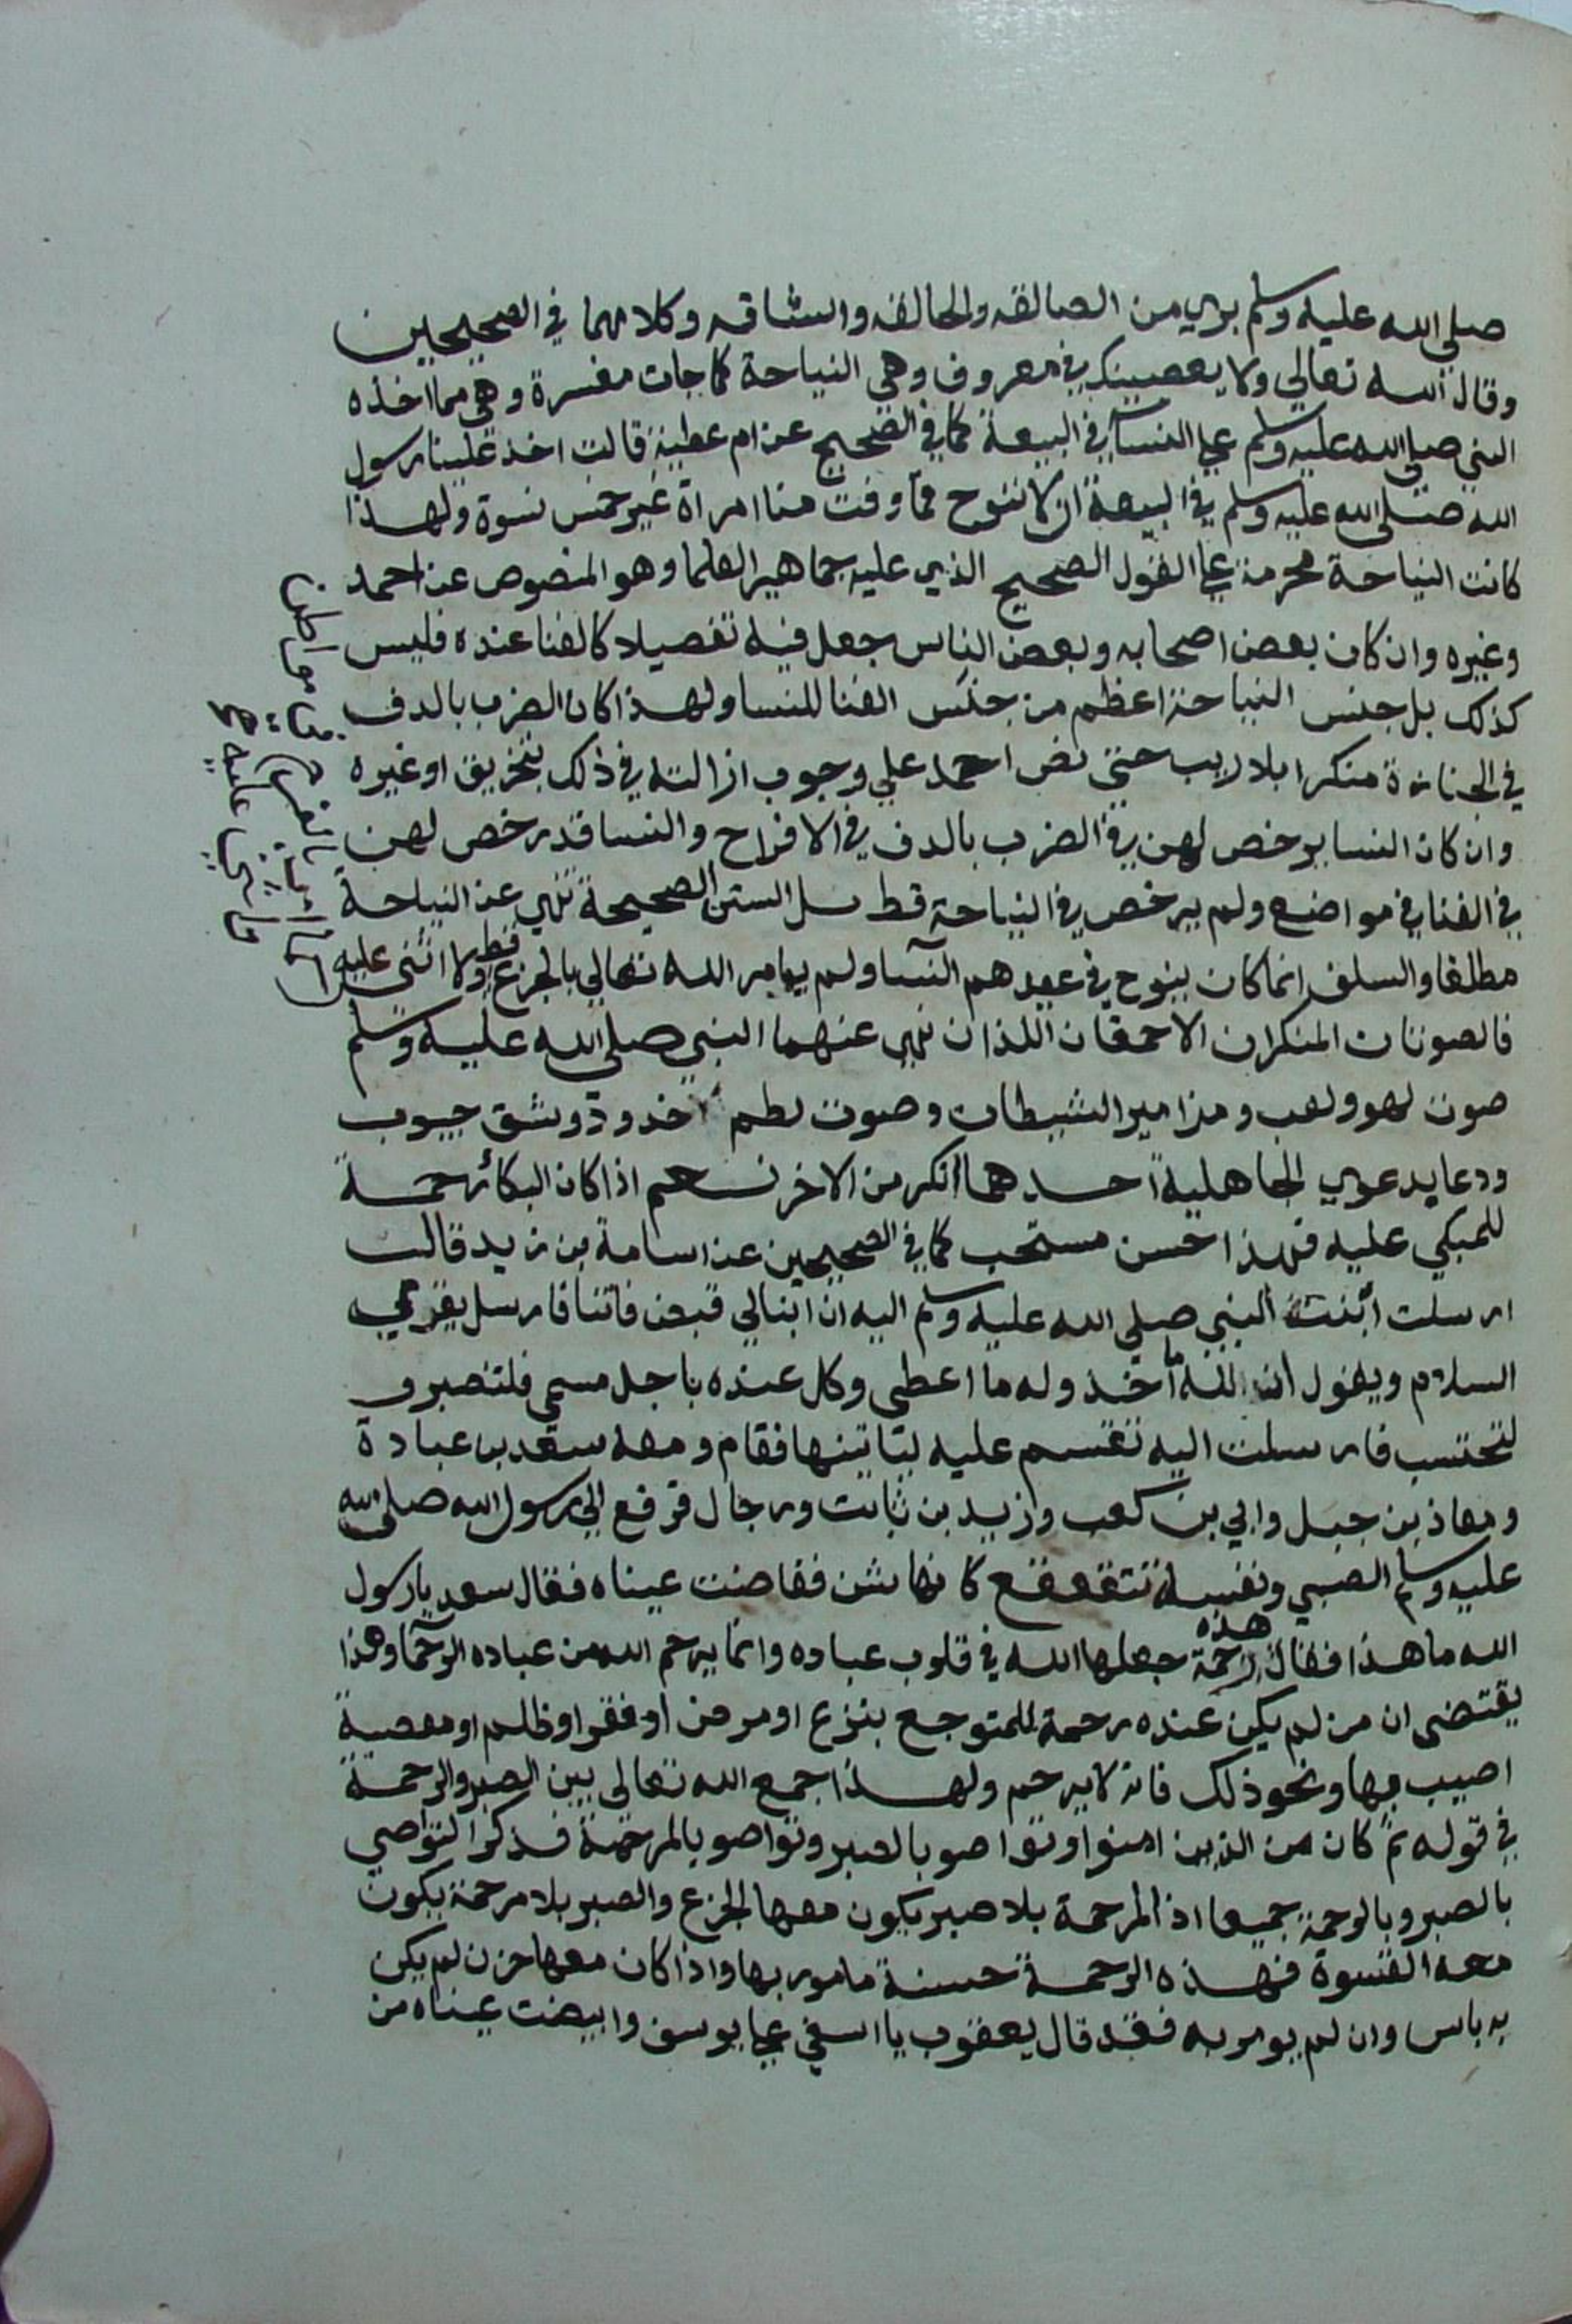 صلي الله عليه وسلم بري من الصالقه والحالقه والشاقه وكلامهما في الصحيحين
وقال الله تعالي ولا يعصينك في معروف وهي النياحة كما جات مفسرة وهي مما اخذه
النبي صلي الله عليه وسلم علي النسآ في البيعة كما في الصحيح عن ام عطية قالت اخذ علينا رسول
الله صلي الله عليه وسلم في البيعة ان لا ننوح فما وفت منا امراة غير خمس نسوة ولهذا
كانت النياحة محرمة علي القول الصحيح الذي عليه جماهير العلما وهو المنصوص عن احمد
وغيره وان كان بعض اصحابه وبعض الناس جعل فيه تفصيلا كالغنا عنده فليس
كذلك بل جنس النياحة اعظم من جنس الغنا للنسا ولهذا كان الضرب بالدف
في الجنازة منكرا بلا ريب حتي نص احمد علي وجوب ازالته في ذلك بتخريق او غيره
وان كان النسا يرخص لهن في الضرب بالدف في الافراح والنسا قد رخص لهن
في الغنا في مواضع ولم يرخص في النياحة قط بل السنن الصحيحة تنهي عن النياحة
مطلقا والسلف انما كان ينوح في عهدهم النسآ ولم يامر الله تعالي بالجزع قط ولا اثنى عليه
فالصوتان المنكران الاحمقان اللذان نهي عنهما النبي صلي الله عليه وسلم
صوت لهو ولعب ومزامير الشيطان وصوت لطم خدود وشق جيوب
ودعا بدعوي الجاهلية احدهما انكر من الاخر نعم اذا كان البكا رحمة
للمبكي عليه فهذا حسن مستحب كما في الصحيحين عن اسامة بن زيد قالت
ارسلت ابنت النبي صلي الله عليه وسلم اليه ان ابنا لي قبض فاتنا فارسل يقري
السلام ويقول ان لله ما اخذ وله ما اعطى وكل عنده باجل مسمي فلتصبر و
لتحتسب فارسلت اليه تقسم عليه لياتينها فقام ومعه سعد بن عبادة
ومعاذ بن جبل وابي بن كعب وزيد بن ثابت ورجال فرفع الي رسول الله صلي الله
عليه وسلم الصبي ونفسه تتقعقع كانها شن ففاضت عيناه فقال سعد يا رسول
الله ما هذا فقال هذه رحمة جعلها الله في قلوب عباده وانما يرحم الله من عباده الرحما وهذا
يقتضى ان من لم يكن عنده رحمة للمتوجع بنزع او مرض او فقر او ظلم او معصية
اصيب بها ونحو ذلك فانه لا يرحم ولهذا جمع الله تعالى بين الصبر والرحمة
في قوله ثم كان من الذين امنوا وتواصو بالصبر وتواصو بالمرحمة فذكر التواصي
بالصبر وبالرحمة جميعا اذ المرحمة بلا صبر يكون معها الجزع والصبر بلا مرحمة يكون
معه القسوة فهذه الرحمة حسنة مامور بها واذا كان معها حزن لم يكن
به باس وان لم يومر به فقد قال يعقوب يا اسفي علي يوسف وابيضت عيناه من